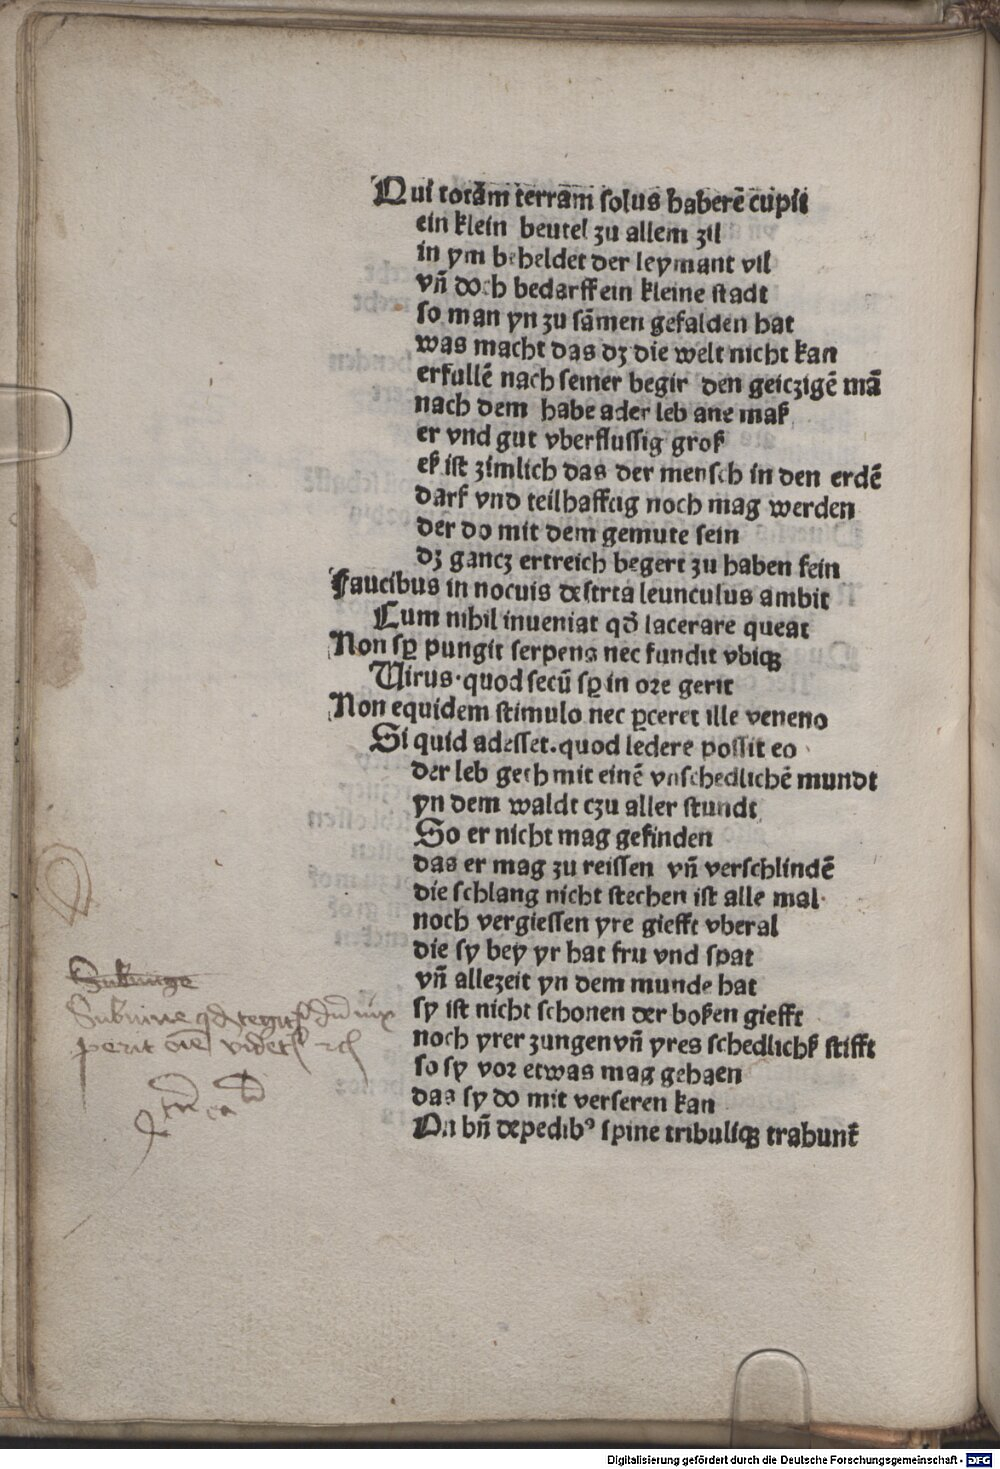 Qui totãm terram solus haberē cupit
ein klein beutel zu allem zil
in ym beheldet der leymant vil
vñ doch bedarff ein kleine stadt
so man yn zu sāmen gefalden hat
was macht das dʒ die welt nicht kan
erfullē nach seiner begir den geiczigē mā
nach dem habe ader leb ane maß
er vnd gut vberflussig groß
eß ist zimlich das der mensch in den erdē
darf vnd teilhafftig noch mag werden
der do mit dem gemute sein
dʒ gancz ertreich begert zu haben fein
Faucibus in nocuis desrta leunculus ambit
Cum nihil inueniat qď lacerare queat
Non sꝑ pungit serpens nec fundit vbiqꝫ
Virus·quod secū sꝑ in ore gerit
Non equidem stimulo nec ꝑceret ille veneno
Si quid adesset.quod ledere possit eo
der leb geth mit einē vnschedlichē mundt
yn dem waldt czu aller stundt
So er nicht mag gefinden
das er mag zu reissen vñ verschlindē
die schlang nicht stechen ist alle mal
noch vergiessen yre giefft vberal
die sy bey yr hat fru vnd spat
vñ allezeit yn dem munde hat
sy ist nicht schonen der boßen giefft
noch yrer zungen vñ yres schedlichß stifft
so sy vor etwas mag gehaen
das sy do mit verseren kan
On bñ de pedibꝰ spine tribuliqꝫ trahunt̄
Subuinge
perit oīe
Digitalisierung gefördert durch die Deutsche Forschungsgemeinschaft - DFG